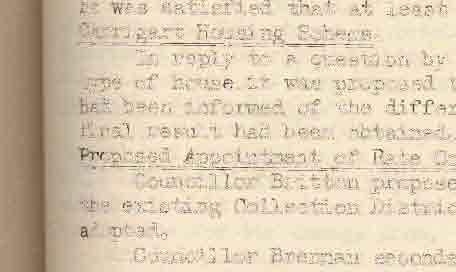 it was satisfied that at least
Carrigart Housing Scheme.
In reply to a question by
type of house it was proposed t
had been informed of the differ
final result had been obtained.
Proposed Appointment of Rate Co
Councillor Britton propose
the existing Collection Distric
adopted.
Councillor Brennan seconde